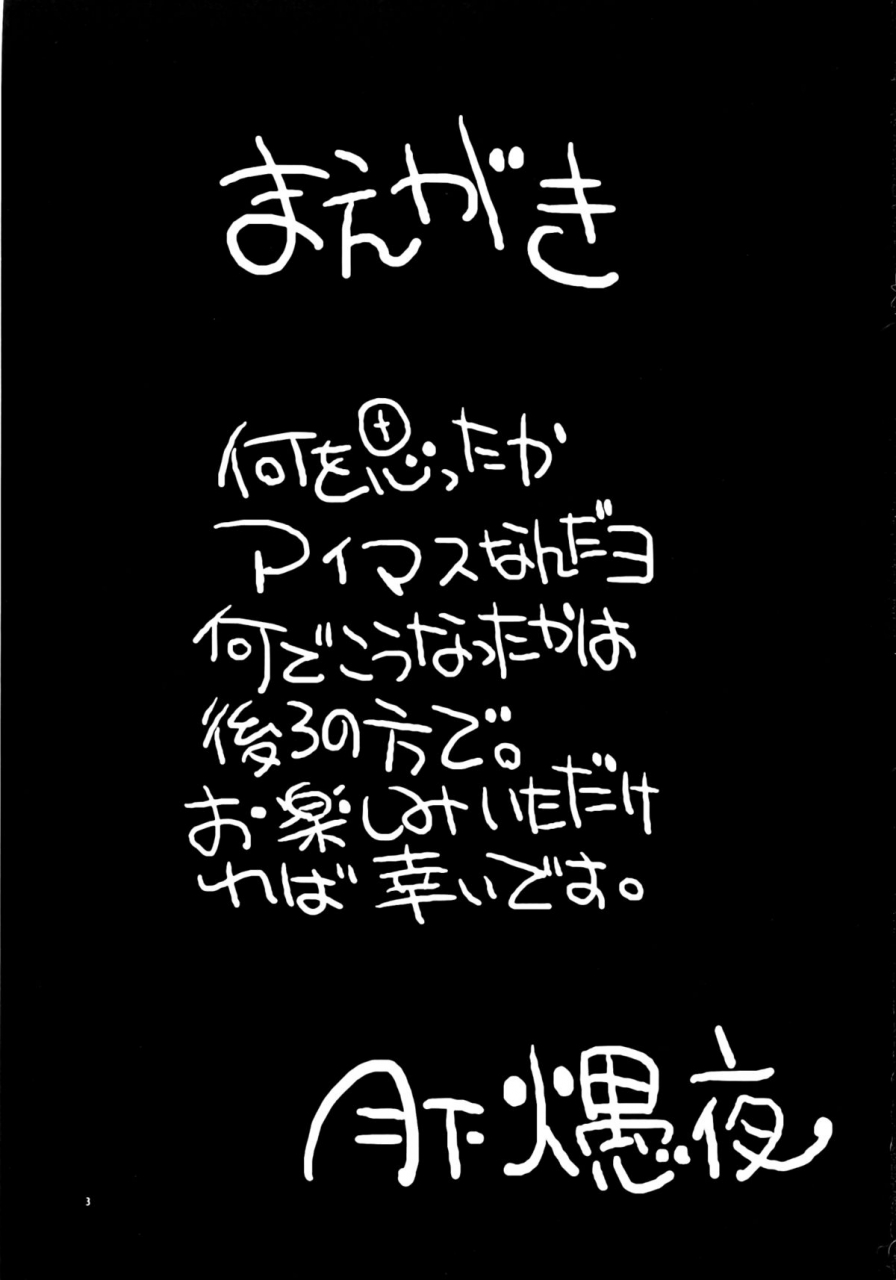 まえがき
何を思ったか
アイマスなんだヨ
何でこうなったかは
後ろの方で。
お楽しみいただけ
れば幸いです。
月下火愚夜
3